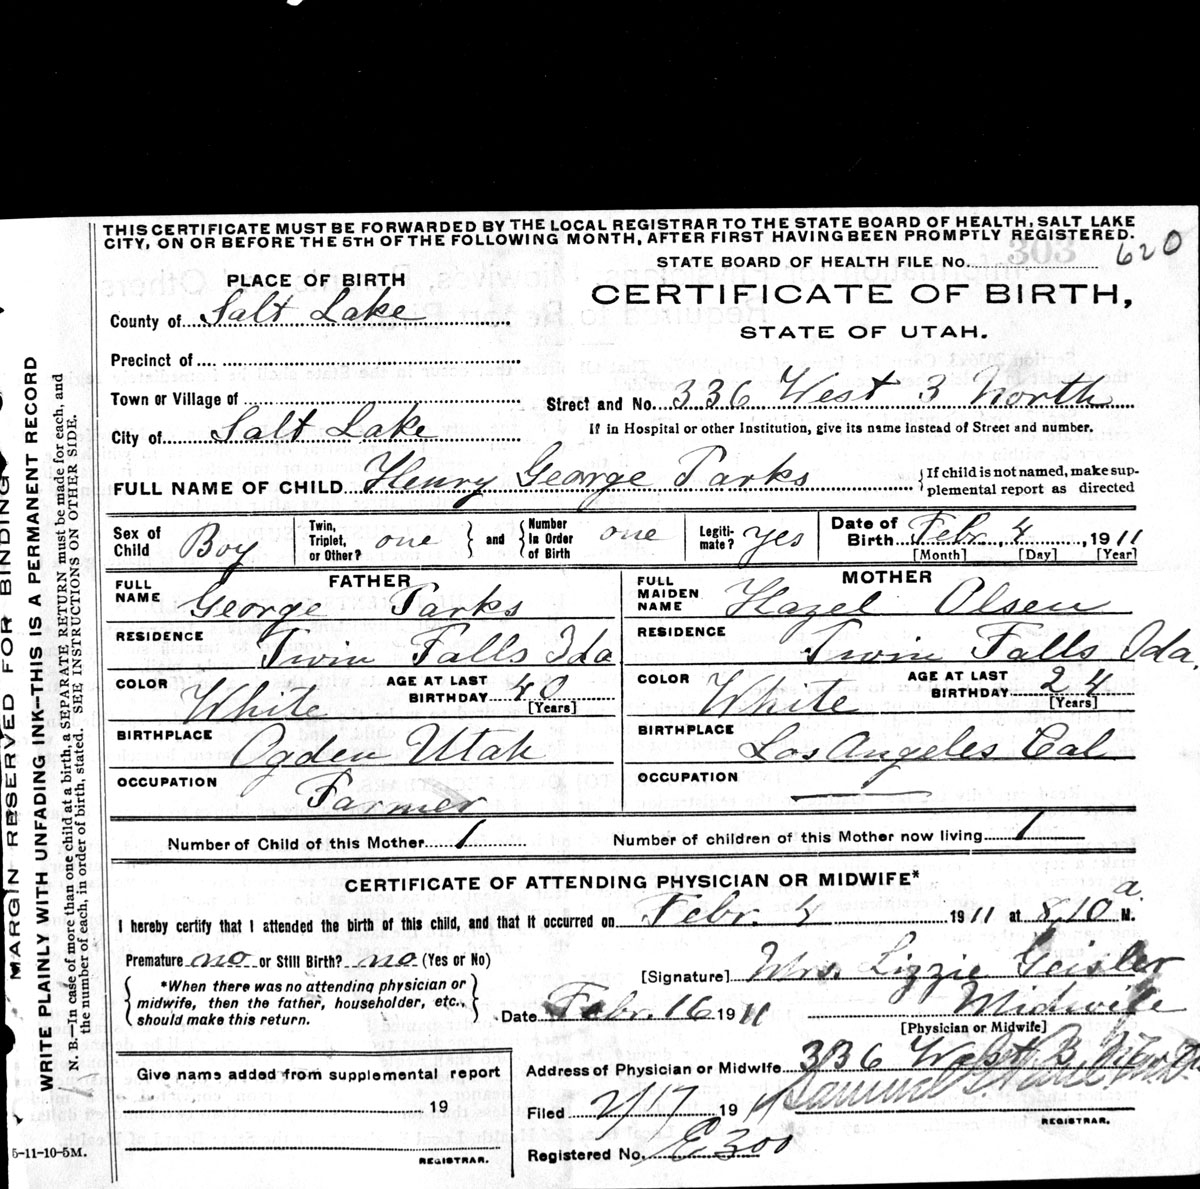 MARGIN RESERVED FOR BINDING
WRITE PLAINLY WITH UNFADING INK—THIS IS A PERMANENT RECORD
N. B.—In case of more than one child at a birth, a SEPARATE RETURN must be made for each, and
the number of each, in order of birth, stated. SEE INSTRUCTIONS ON OTHER SIDE.
THIS CERTIFICATE MUST BE FORWARDED BY THE LOCAL REGISTRAR TO THE STATE BOARD OF HEALTH, SALT LAKE
CITY, ON OR BEFORE THE 5TH OF THE FOLLOWING MONTH, AFTER FIRST HAVING BEEN PROMPTLY REGISTERED.
STATE BOARD OF HEALTH FILE No. 303 620
PLACE OF BIRTH
CERTIFICATE OF BIRTH,
County of Salt Lake
STATE OF UTAH.
Precinct of
Town or Village of
Street and No. 336 West 3 North
City of Salt Lake
If in Hospital or other Institution, give its name instead of Street and number.
FULL NAME OF CHILD Henry George Parks {If child is not named, make sup-
plemental report as directed
Sex of Child Boy Twin, Triplet, or Other? one } and { Number In Order of Birth one Legiti-mate? yes Date of Birth Febr. 4, 1911
[Month] [Day] [Year]
FATHER MOTHER
FULL NAME George Parks FULL MAIDEN NAME Hazel Olsen
RESIDENCE Twin Falls Ida RESIDENCE Twin Falls Ida.
COLOR White AGE AT LAST BIRTHDAY 40 [Years] COLOR White AGE AT LAST BIRTHDAY 24 [Years]
BIRTHPLACE Ogden Utah BIRTHPLACE Los Angeles Cal
OCCUPATION Farmer OCCUPATION —
Number of Child of this Mother 1 Number of children of this Mother now living 1
CERTIFICATE OF ATTENDING PHYSICIAN OR MIDWIFE*
I hereby certify that I attended the birth of this child, and that it occurred on Febr. 4 1911 at 8.10 a. M.
Premature no or Still Birth? no (Yes or No)
[Signature] Mrs. Lizzie Geisler
{ *When there was no attending physician or
midwife, then the father, householder, etc.,
should make this return. }
Date Febr. 16 1911 Midwife
[Physician or Midwife]
Give name added from supplemental report
Address of Physician or Midwife 336 West 3 North
19
Filed 2/17 1911
REGISTRAR.
Registered No. E300
REGISTRAR.
5-11-10-5M.